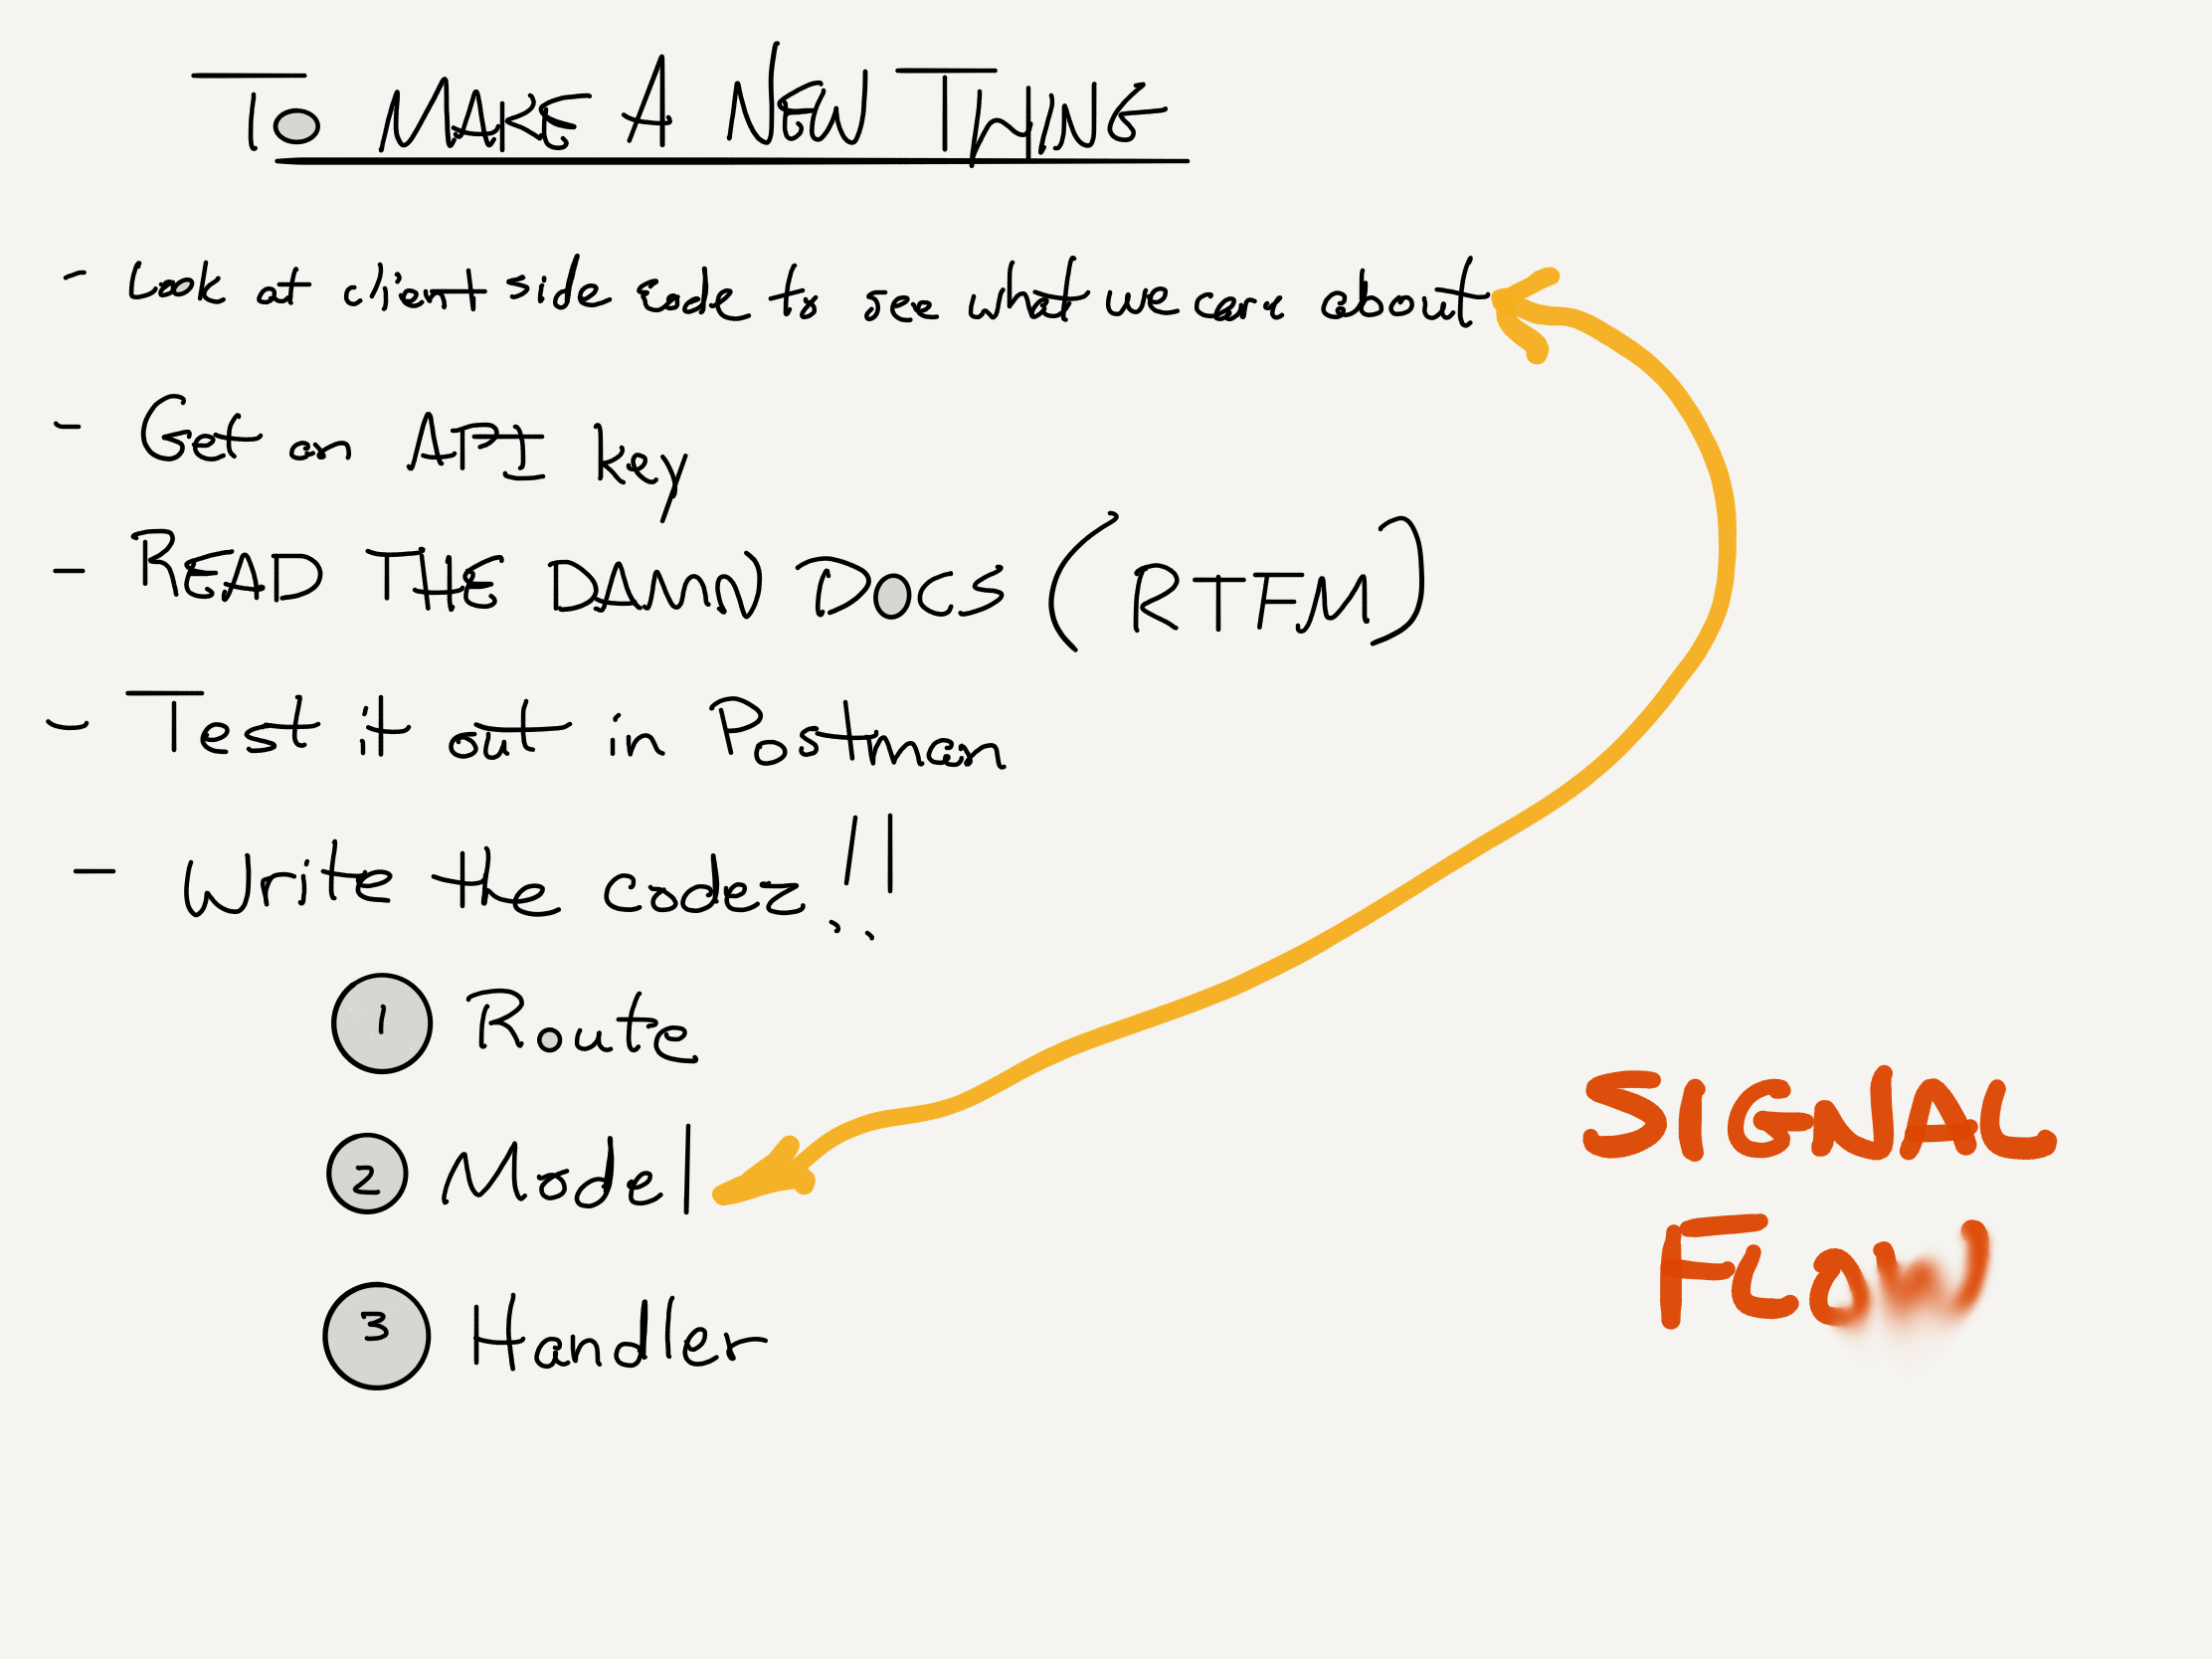 To MAKE A NEW THING
- Look at client side code to see what we care about
- Get an API key
- READ THE DAMN DOCS (RTFM)
- Test it out in Postman
- Write the codez!!
1 Route
2 Model
3 Handler
SIGNAL
FLOW